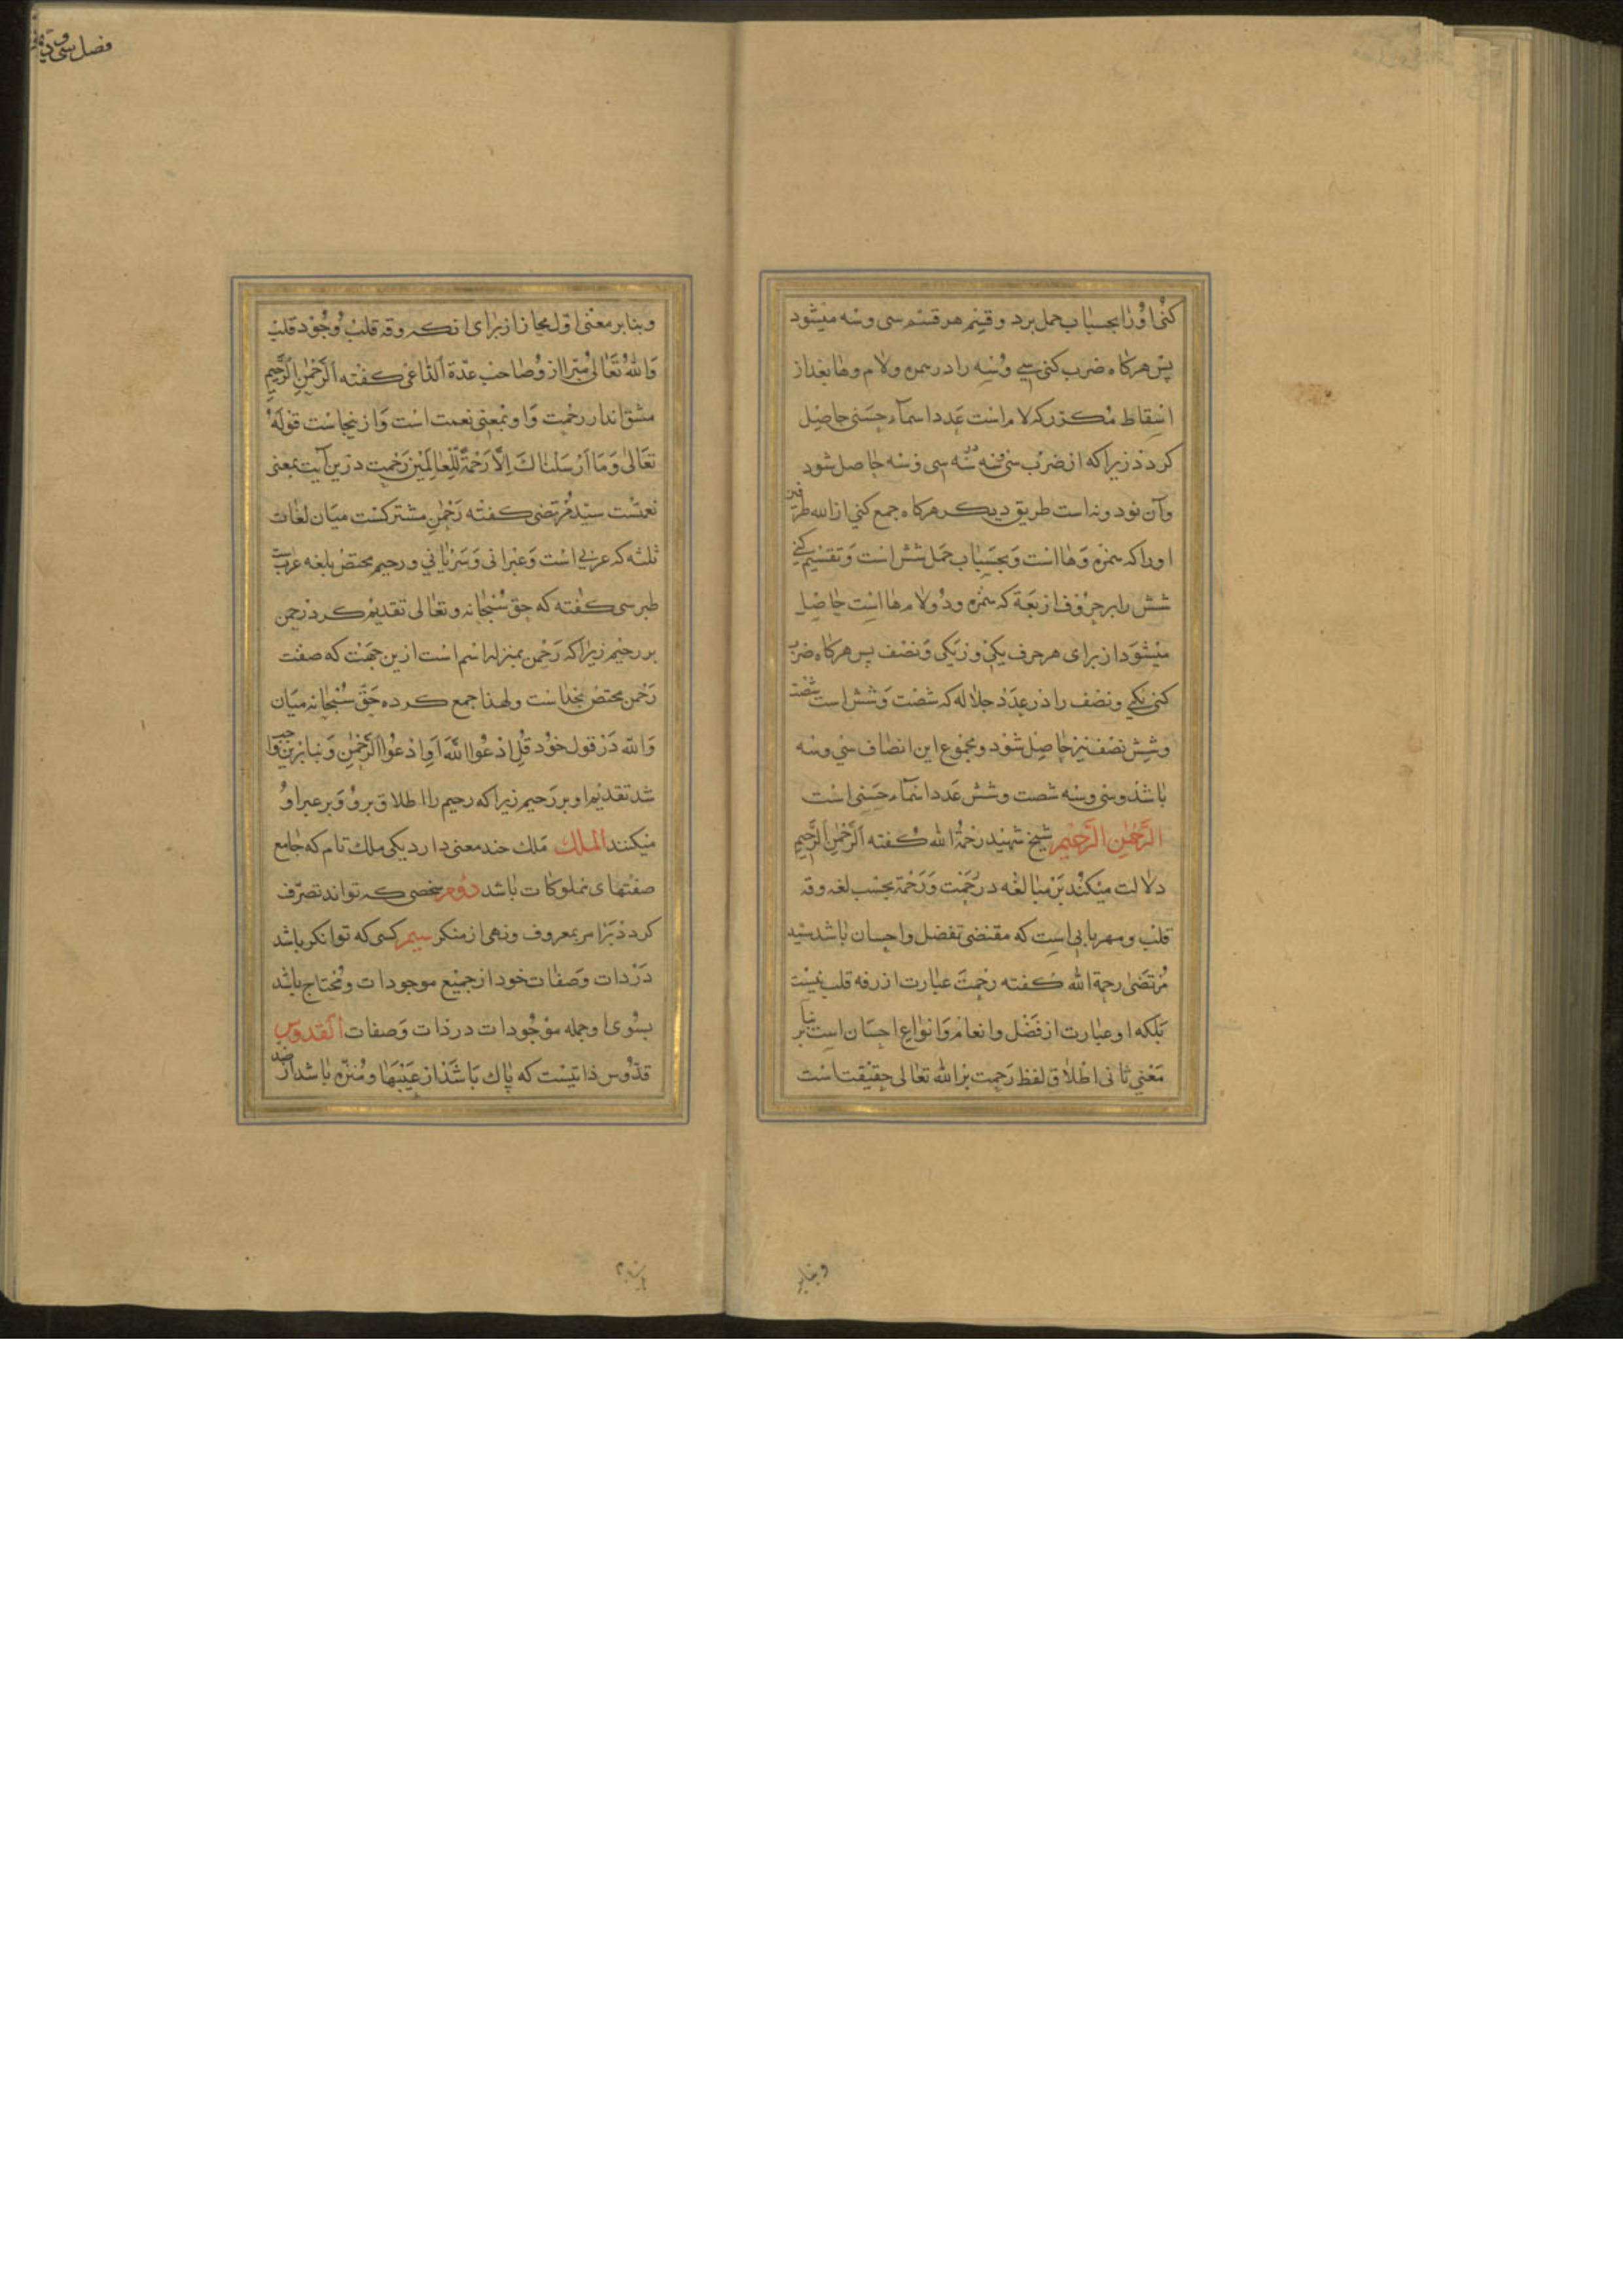 کنی اورا بحساب جمل برد و قسم هر قسم سی و سه میشود
پس هرکاه ضرب کنی سی و سه را در همزه ولام وها بعد از
اسقاط مکرر که لام است عدد اسماء حسنی حاصل
کردد زیرا که از ضرب سی و سه در سه حاصل شود
وآن نود ونه است طریق دیکر هرکاه جمع کنی از الله طرفین
اورا که همزه وها است وبحساب جمل شش است وتقسیم کنی
شش را بر حروف اربعة که همزه ودو لام وها است حاصل
میشود از برای هر حرف یکی ونصف پس هرکاه ضرب
کنی یکی ونصف را در عدد جلاله که شصت وشش است شصت
وشش نصف نیز حاصل شود ومجموع این انصاف سی وسه
باشد وسی وسه شصت وشش عدد اسماء حسنی است
الرحمن الرحیم شیخ شهید رحمة الله کفته الرحمن الرحیم
دلالت میکند بر مبالغه در رحمت ورحمة بحسب لغه رقه
قلب ومهربانی است که مقتضی تفضل واحسان باشد سید
مرتضی رحمة الله کفته رحمت عبارت از رقه قلب نیست
بلکه او عبارت از فضل وانعام وانواع احسان است بنا بر
معنی ثانی اطلاق لفظ رحمت بر الله تعالی حقیقت است
وبنابر
فصل سی و
وبنابر معنی اول مجاز از برای انکه رقه قلب وجود قلب
والله تعالی مبرا ازو صاحب عدّة الداعی کفته الرّحمن الرّحیم
مشق اند از رحمت واو بمعنی نعمت است واز ینجاست قوله
تعالی وما ارسلناك الا رحمة للعالمین رحمت درین آیت بمعنی
نعمتست سید مرتضی کفته رحمن مشترکست میان لغات
ثلثه که عربی است وعبرانی وسریانی ورحیم مختص بلغه عربست
طبرسی کفته که حق سبحانه وتعالی تقدیم کرد رحمن
بر رحیم زیرا که رحمن بمنزله اسم است ازین جهت که صفت
رحمن مختص بخداست ولهذا جمع کرده حق سبحانه میان
والله در قول خود قل ادعوا الله او ادعوا الرحمن وبنا برین
شد تقدیم او بر رحیم زیرا که رحیم را اطلاق برو وبر غیر او
میکنند الملك ملك چند معنی دارد یکی ملك تام که جامع
صفتهای مملوکات باشد دوم شخصی که تواند تصرّف
کردد بر امر بمعروف ونهی از منکر سیم کسی که توانکر باشد
در ذات وصفات خود از جمیع موجودات ومحتاج باشد
بسوی او جمله موجودات در ذات وصفات القدوس
قدّوس ذاتیست که پاك باشد از عیبها ومنزه باشد از ضد